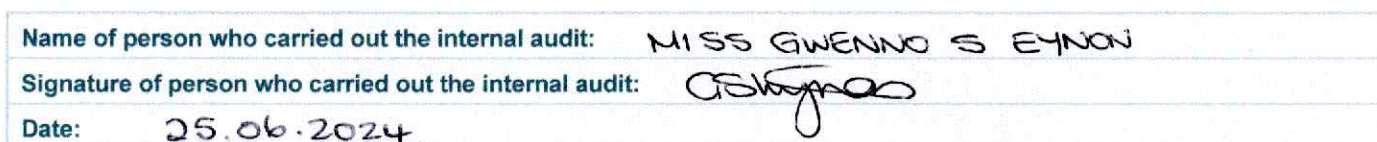 Name of person who carried out the internal audit: MISS GWENNO S EYNON
Signature of person who carried out the internal audit:
Date: 25.06.2024